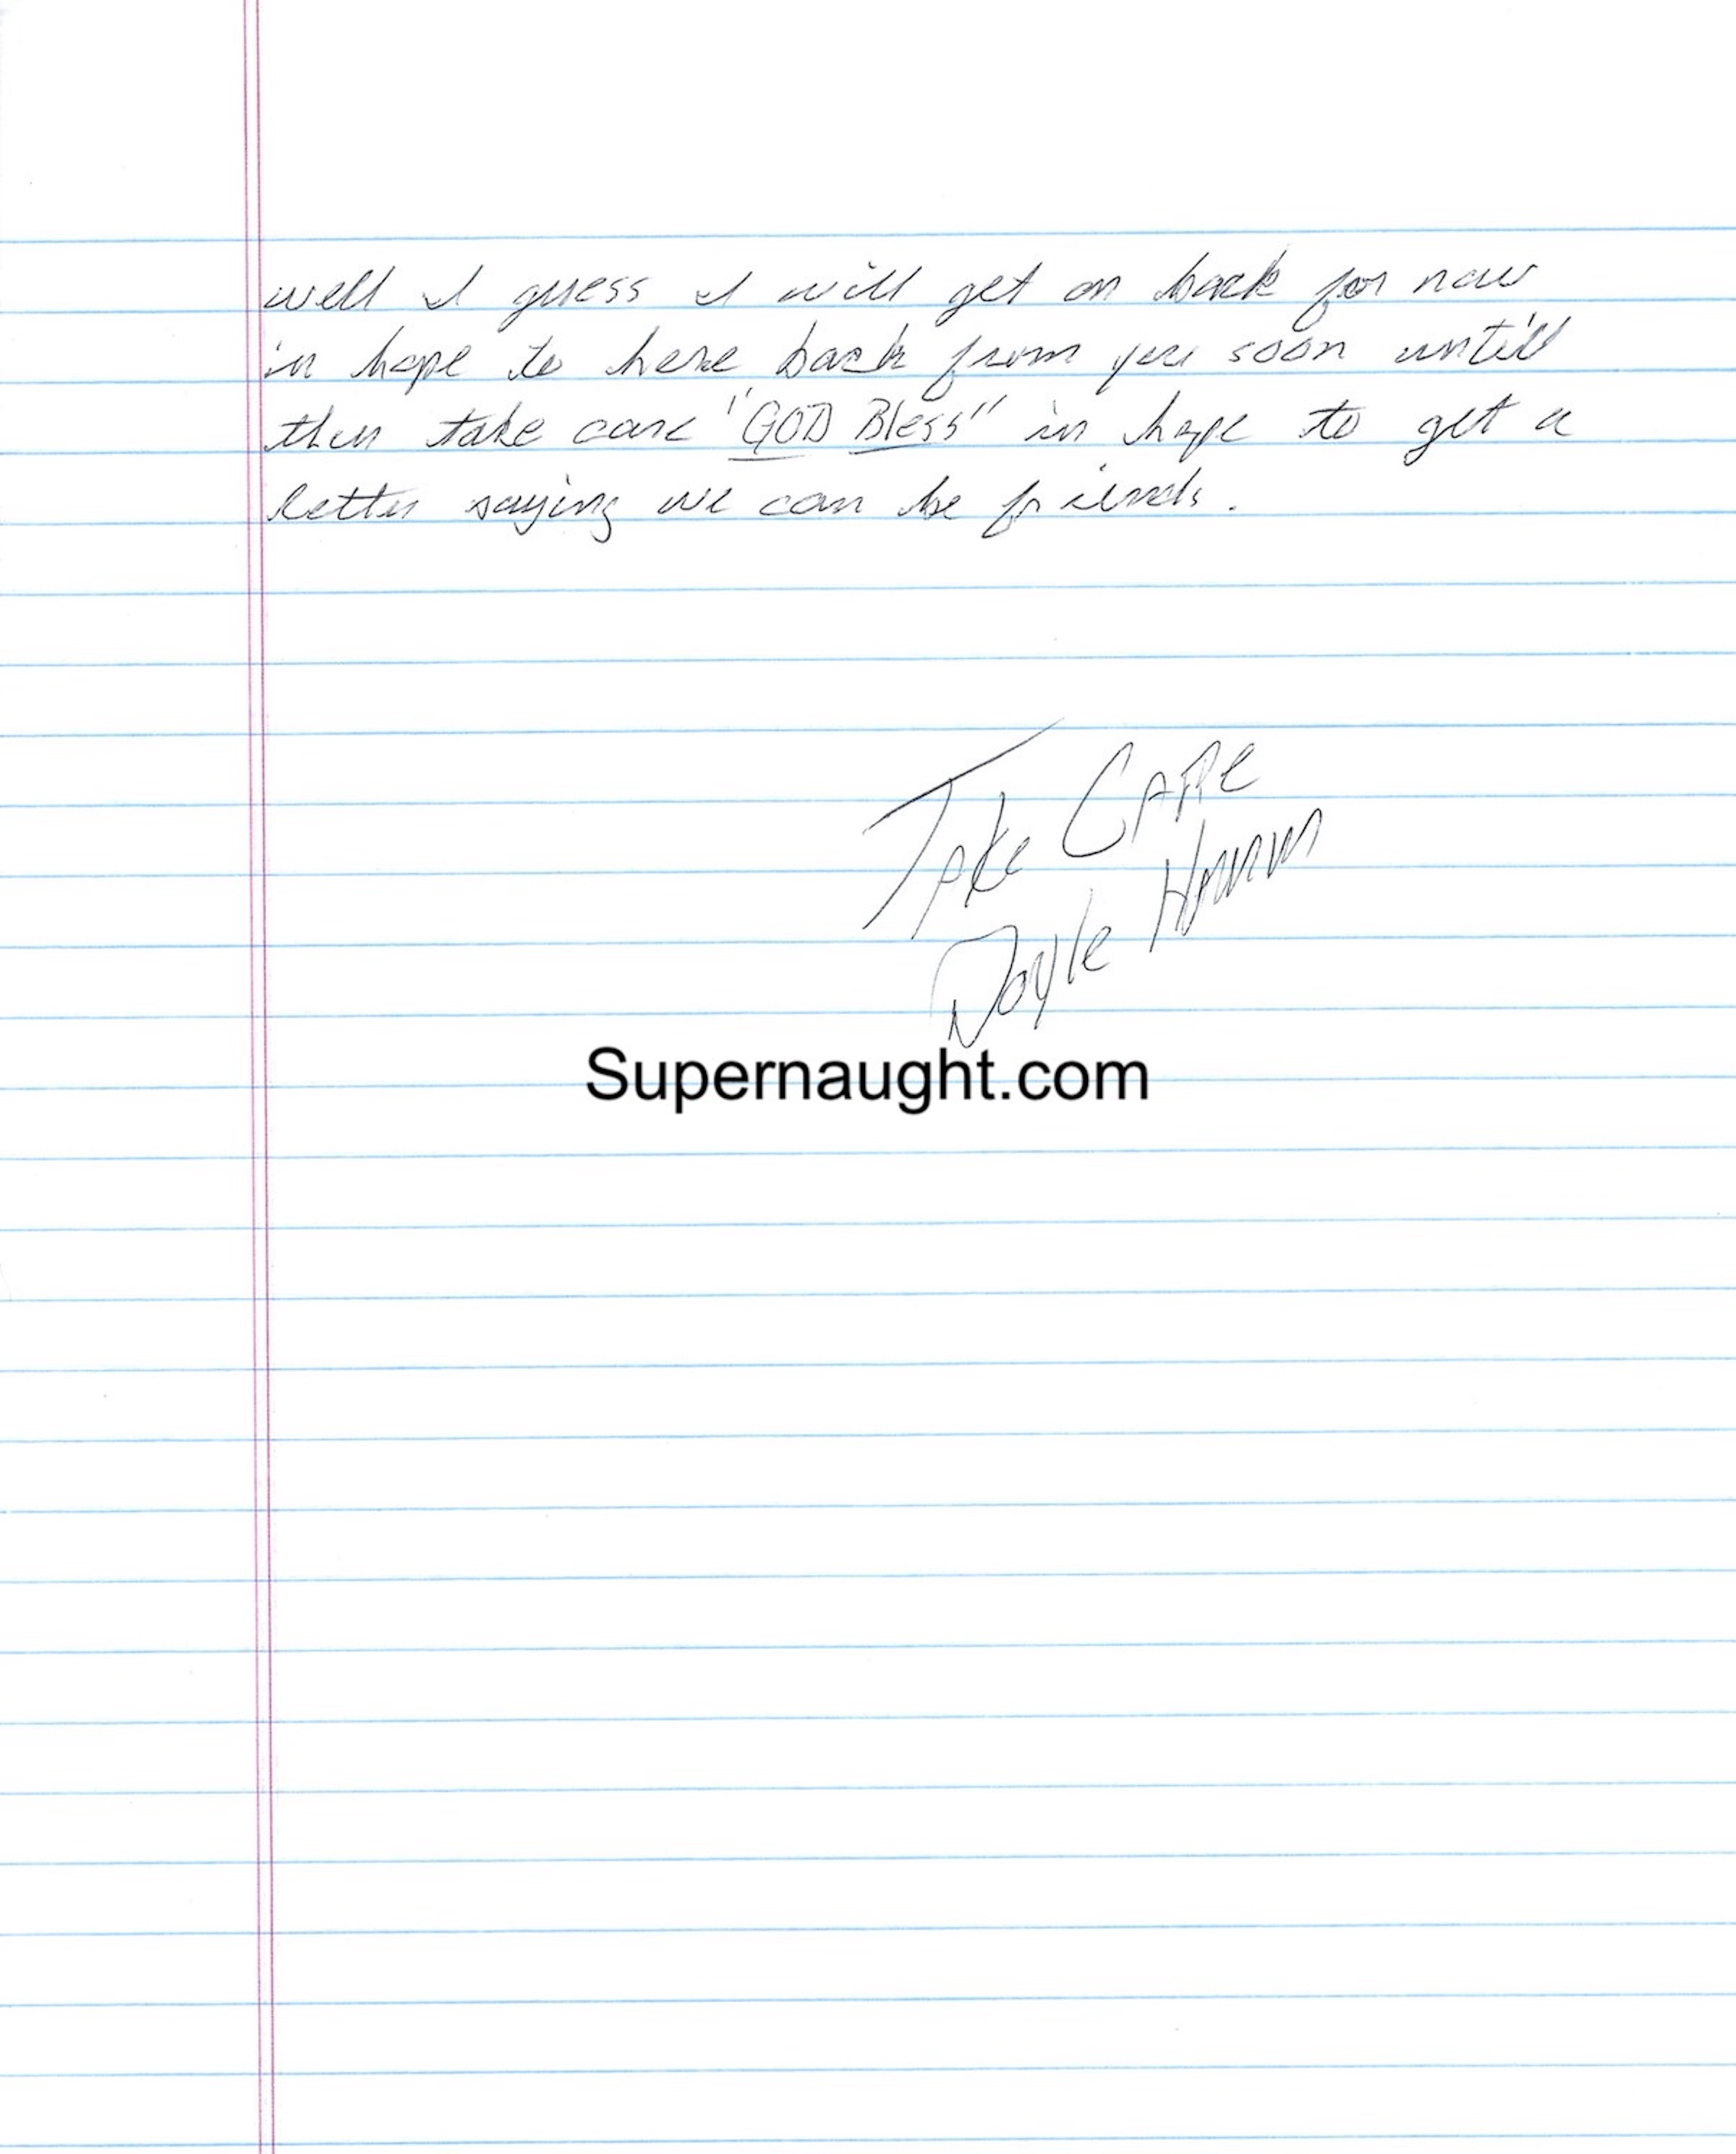 well I guess I will get on back for now
in hope to here back from you soon untill
then take care "GOD Bless" in hope to get a
letter saying we can be friends.
Take CARE
Doyle Hamm
Supernaught.com